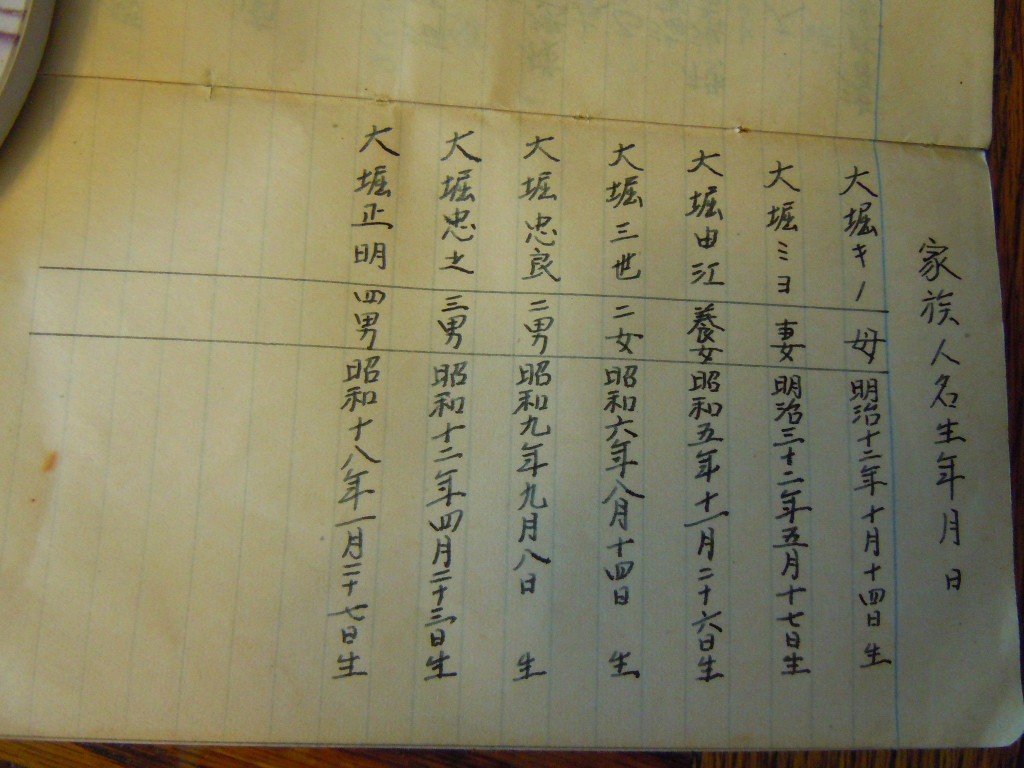 家族人名生年月日
大堀キノ 母 明治十二年十月十四日生
大堀ミヨ 妻 明治三十二年五月十七日生
大堀由江 養女 昭和五年十一月二十六日生
大堀三世 二女 昭和六年八月十四日 生
大堀忠良 二男 昭和九年九月八日 生
大堀忠之 三男 昭和十二年四月二十三日生
大堀正明 四男 昭和十八年一月二十七日生